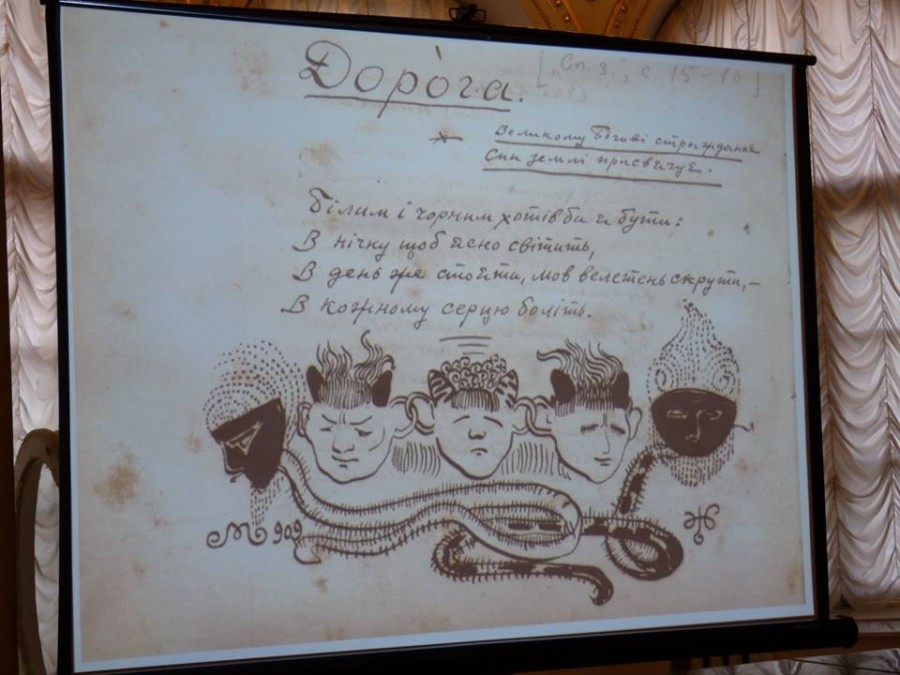 Доро̀га.
[„Сп. з.", с. 15-16]
* Великому Богові страждання
Син землі присвячує.
Білим і чорним хотів би я бути:
В нічку щоб ясно світить,
В день же стояти, мов велетень скрути,–
В кожному серцю боліть.
М 909
Ж